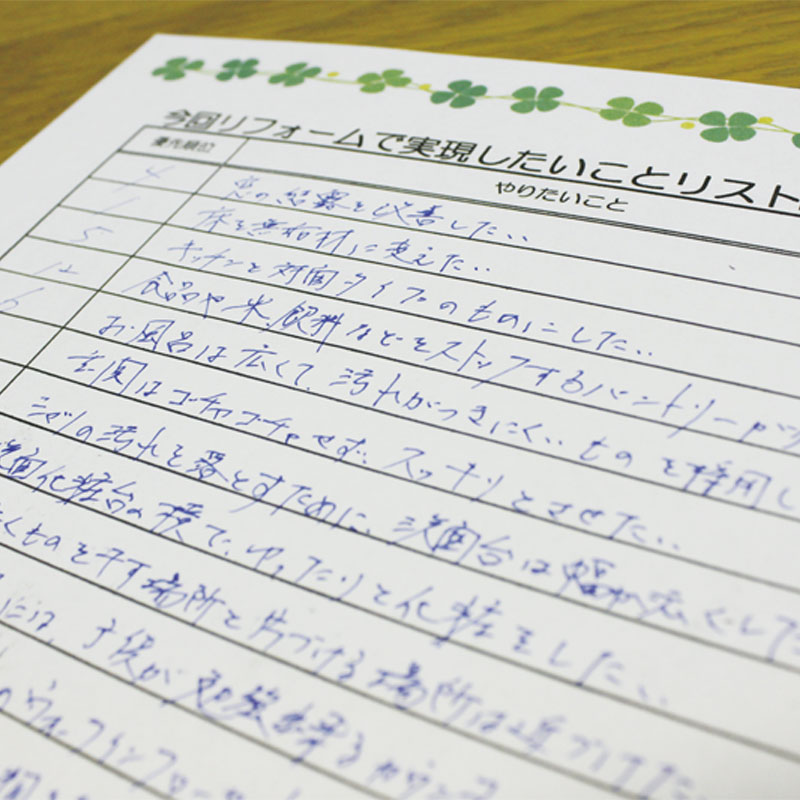 今回リフォームで実現したいことリスト
優先順位 やりたいこと
4 窓の結露を改善したい
1 床を無垢材に変えたい
5 キッチンを対面タイプのものにしたい
12 食品や米、飲料などをストックするパントリーが
6 お風呂は広くて、汚れがつきにくいものを採用し
玄関はゴチャゴチャせず、スッキリとさせたい
シャツの汚れを落とすために、洗面台は幅が広くした
洗面化粧台の横で、ゆったりと化粧をしたい
くものを干す場所と片づける場所は近づけた
には、子供が
ウォークインクローゼ